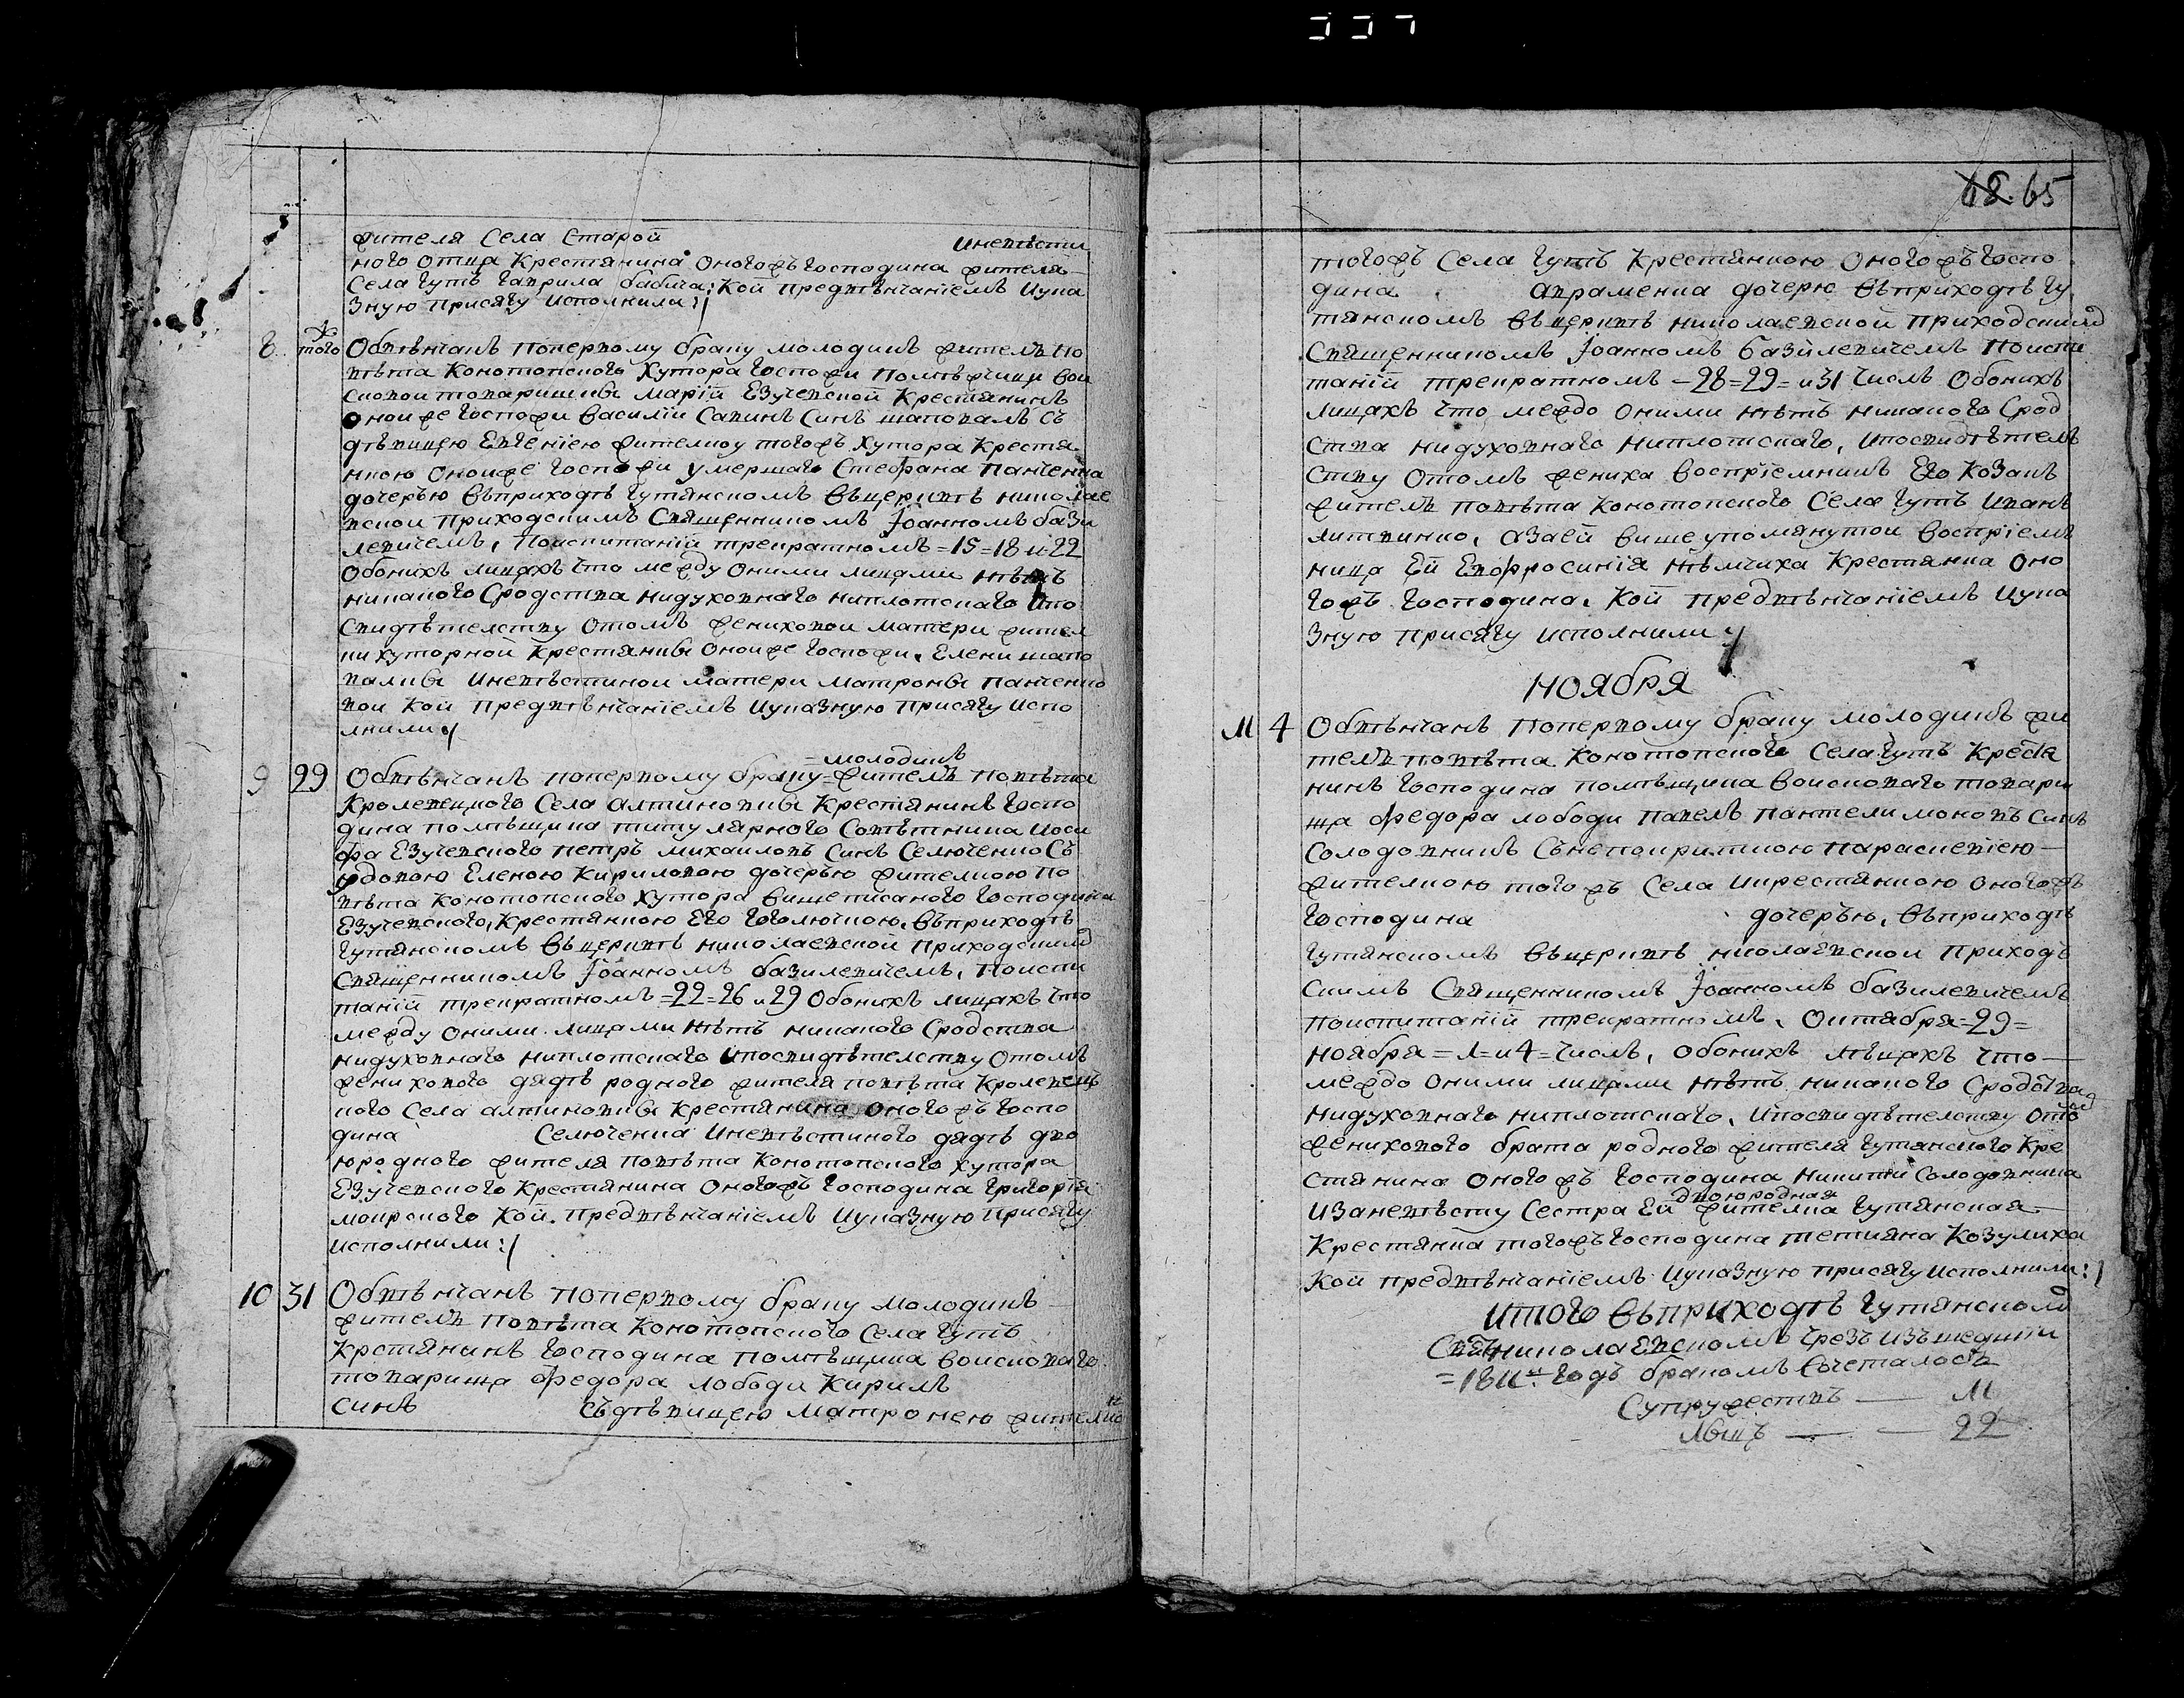 жителя Села Старой невѣсти
ного отца Крестянина оногожъ господина жителя
Села Гутъ Гаврила бабича; Кои предвѣнчаніемъ иука
зную присягу исполнили:/
8 того Обвѣнчанъ попервому браку молодикъ жителъ по
вѣта Конотопского Хутора Госпожи помѣщици вои
сковои товаришки Маріи Езучевской Крестянинъ
оноиже Госпожи Василіи Савинъ Синъ шаповалъ Съ
дѣвицею Евгеніею жителкоу тогожъ Хутора Крестя
нкою оноиже Госпожи умершаго Стефана Панченка
дочерью въприходѣ Гутянскомъ вцерквѣ николае
вскои приходскимъ Священникомъ Іоанномъ бази
левичемъ, Поиспитаніи трекратномъ =15=18 и 22
обоникъ лицахъ что между оними лицами нѣтъ
никакого Сродства нидуховнаго ниплотскаго ипо
Свидѣтелству отомъ жениховои матери жител
ки хуторнои Крестянки оноиже Госпожи, Елени шапо
валки иневѣстинои матери Матрони Панченко
вои Кои предвѣнчаніемъ иуказную присягу испо
лнили:/
молодикъ
9 29 Обвѣнчанъ поперкому браку = жителъ повѣта
Кролевецкого Села алтиновки Крестянинъ Госпо
дина помѣщика титулярного Совѣтника Иоси
фа Езучевского Петръ Михаиловъ Синъ Селюченко Съ
удовою Еленою Кириловою дочерью жителкою по
вѣта Конотопского Хутора вишеписаного Господина
Езучевского, Крестянкою его Гоголючкою, въприходѣ
Гутянскомъ въцерквѣ николаевскои приходскимъ
Священникомъ Іоанномъ базилевичемъ, Поиспи
таніи трекратномъ =22=26 и 29 обоникъ лицахъ что
между оними лицами нѣтъ никакого Сродства
нидуховнаго ниплотскаго ипосвидѣтелству отомъ
женихового дядѣ родного жителя повѣта Кролевец
кого Села алтиновки Крестянина оногожъ Госпо
дина Селюченка иневѣстиного дядѣ дво
юродного жителя повѣта Конотопского хутора
Езучевского Крестянина оногожъ Господина Григорія
мокрского Кои предвѣнчаніемъ иуказную присягу
исполнили:/
10 31 Обвѣнчанъ поперкому браку молодикъ
жителъ повѣта Конотопского Села Гутъ
Крстянинъ Господина помѣщика воисковаго
товарища Федора лободи Кирилъ
Синъ Съдѣвицею Матронею жителко
68. 65
тогожъ Села Гутъ Крестянкою оногожъ Госпо
дина авраменка дочерю въприходѣ Гу
тянскомъ въцерквѣ николаевской приходскимъ
Священникомъ Іоанномъ базилевичемъ Поиспи
таніи трекратномъ =28=29= и 31 числъ обоникъ
лицахъ что, междо оними нѣтъ никакого Срод
ства нидуховнаго ниплотскаго, ипосвидѣтель
ству отомъ жениха воспріемникъ его Козакъ
жителъ повѣта Конотопского Села Гутъ иванъ
литвинко, азаеи вишеупомянутои воспріем
ница ей Евфросинія нѣмчиха Крестянка оно
гожъ Господина, Кои предвѣнчаніемъ иука
зную присягу исполнили:/
Ноября
11 4 Обвѣнчанъ поперкому браку молодикъ жи
телъ повѣта Конотопского Села Гутъ Кресtя
нинъ Господина помѣщика воисковаго товари
ща Федора лободи Павелъ Пантелимоновъ Синъ
Солодовникъ Сънепокриткою Параскевіею
жителкою тогожъ Села икрестянкою оногожъ
Господина дочерью, въприходѣ
Гутянскомъ въцерквѣ николаевскои приход
скимъ Священникомъ Іоанномъ базилевичемъ
поиспитаніи трекратномъ, октября =29=
ноября =1= и 4 = числъ, обоникъ лицахъ что
междо оними лицами нѣтъ никакого Сродства
нидуховнаго ниплотскаго, ипосвидѣтелству отом
женихового брата родного жителя Гутянского Кре
стянина оногожъ Господина Никити Солодовника
двоюродная
изаневѣсту Сестра ей жителка Гутянская
Крестянка тогожъ Господина Тетияна Козулиха
Кои предвѣнчаніемъ иуказную присягу исполнили:/
Итого въприходѣ Гутянском
Свѣтониколаевскомъ чрезъ изъшедшіи
=1811и Годъ бракомъ Сочеталось
Супружествъ — 11
Лицъ — 22